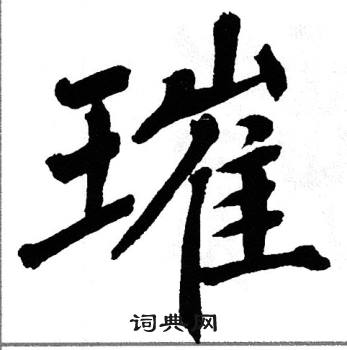 璀
词典网